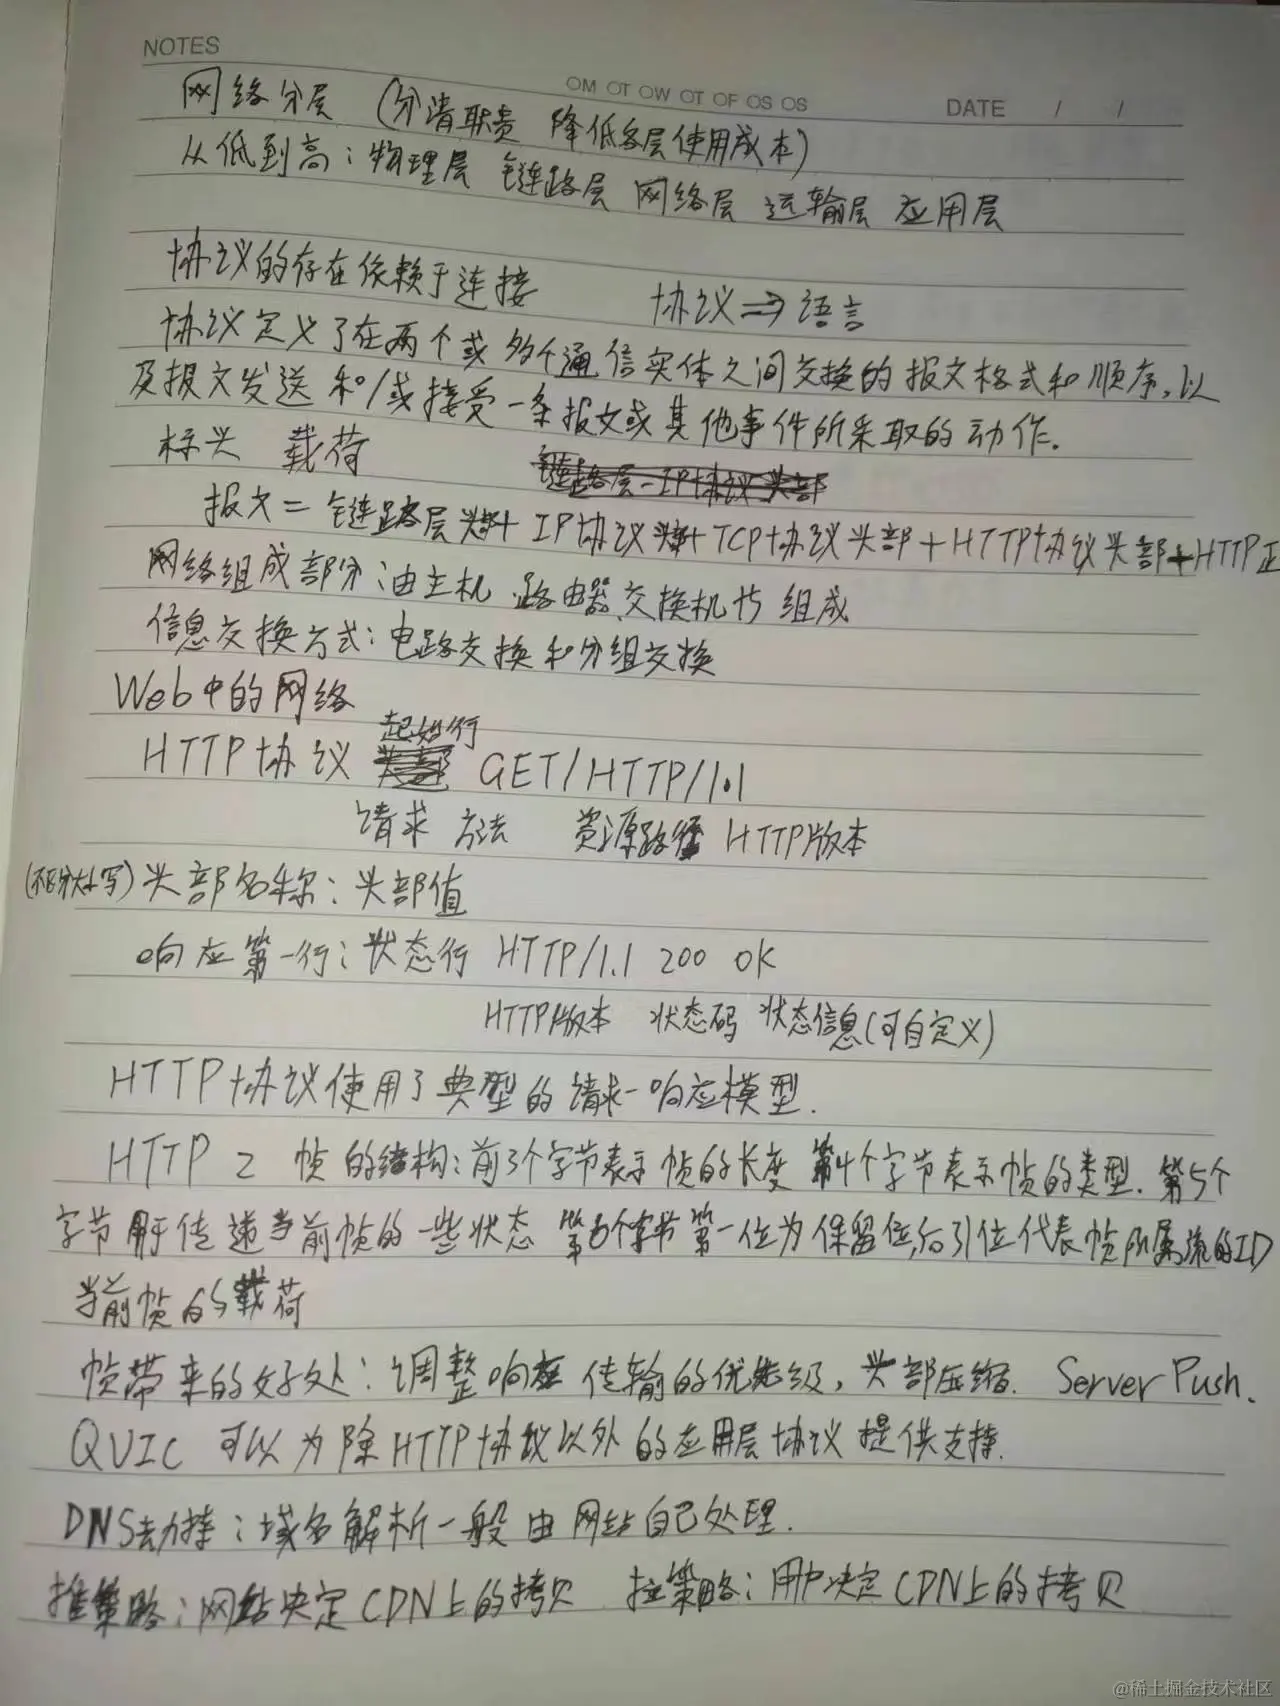 NOTES
OM OT OW OT OF OS OS
DATE / /
网络分层 (分清职责 降低各层使用成本)
从低到高：物理层 链路层 网络层 运输层 应用层
协议的存在依赖于连接 协议⇒语言
协议定义了在两个或多个通信实体之间交换的报文格式和顺序，以
及报文发送和/或接受一条报文或其他事件所采取的动作。
标头 载荷 链路层-IP协议头部
报文=链路层头部+IP协议头部+TCP协议头部+HTTP协议头部+HTTP正
网络组成部分：由主机 路由器 交换机 组成
信息交换方式：电路交换和分组交换
Web中的网络
HTTP协议 起始行 GET/HTTP/1.1
请求方法 资源路径 HTTP版本
(不区分大小写)头部名称：头部值
响应第一行：状态行 HTTP/1.1 200 OK
HTTP版本 状态码 状态信息(可自定义)
HTTP协议使用了典型的请求-响应模型.
HTTP 2 帧的结构：前3个字节表示帧的长度 第4个字节表示帧的类型. 第5个
字节用于传递当前帧的一些状态 第6个字节第一位为保留位,后31位代表帧所属流的ID
当前帧的载荷
帧带来的好处：调整响应传输的优先级，头部压缩. Server Push.
QUIC 可以为除HTTP协议以外的应用层协议提供支持.
DNS劫持：域名解析一般由网站自己处理.
推策略：网站决定CDN上的拷贝 拉策略：用户决定CDN上的拷贝
@稀土掘金技术社区